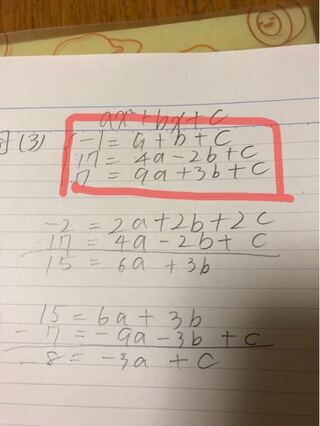 ax²+bx+c
(3) -1 = a+b+c
17 = 4a-2b+c
7 = 9a+3b+c
-2 = 2a+2b+2c
17 = 4a-2b+c
15 = 6a +3b
15 = 6a+3b
- 7 = -9a-3b+c
8 = -3a +c